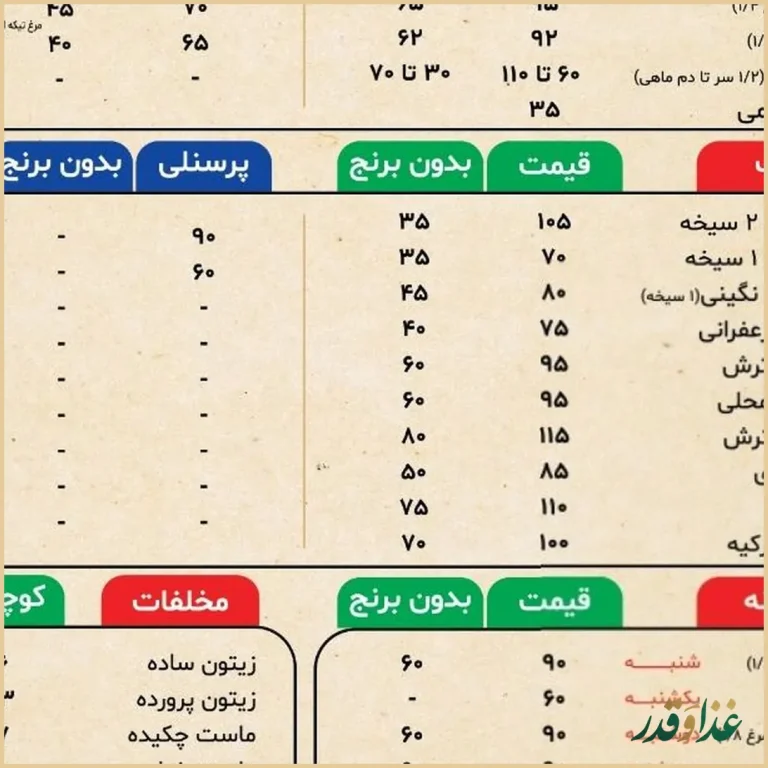 ۶۵ ۷۰ ۴۵
۹۲ ۶۲ ۶۵ ۴۰
(۱/۲ سر تا دم ماهی) ۶۰ تا ۱۱۰ ۳۰ تا ۷۰ - -
۳۵
قیمت بدون برنج پرسنلی بدون برنج
۲ سیخه ۱۰۵ ۳۵ ۹۰ -
۱ سیخه ۷۰ ۳۵ ۶۰ -
نگینی(۱ سیخه) ۸۰ ۴۵ - -
زعفرانی ۷۵ ۴۰ - -
ترش ۹۵ ۶۰ - -
محلی ۹۵ ۶۰ - -
ترش ۱۱۵ ۸۰ - -
۸۵ ۵۰ - -
۱۱۰ ۷۵ - -
۱۰۰ ۷۰ - -
قیمت بدون برنج مخلفات
شنبه ۹۰ ۶۰ زیتون ساده
یکشنبه ۶۰ - زیتون پرورده
۹۰ ۶۰ ماست چکیده
غذاوقدر